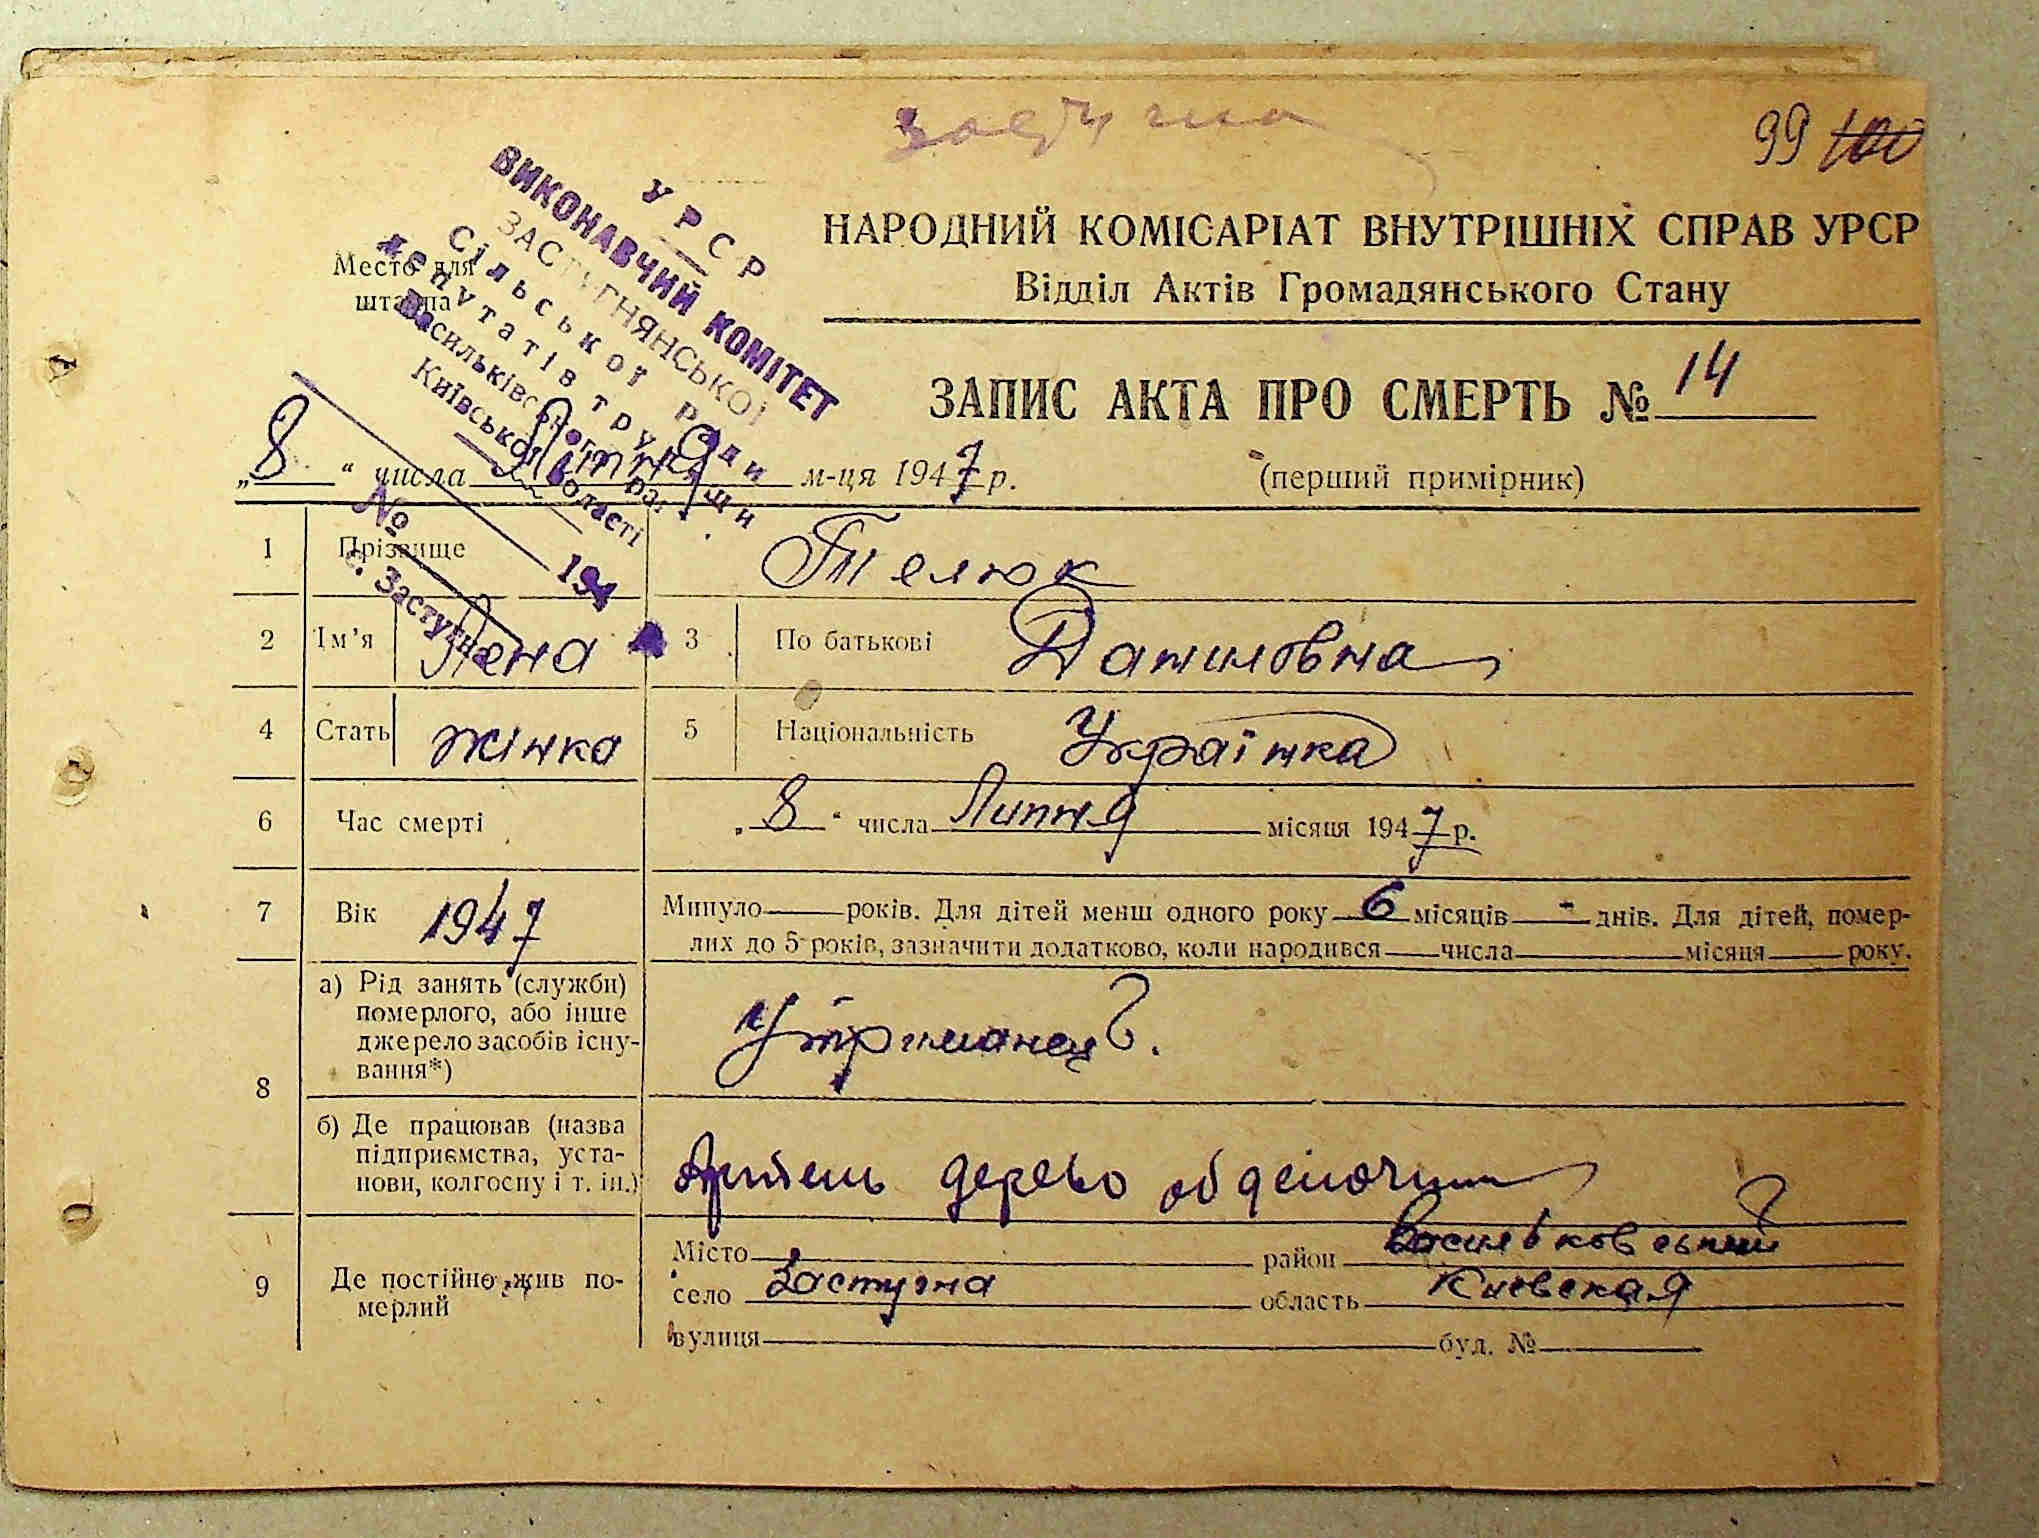 Застугна
99 100
У Р С Р
ВИКОНАВЧИЙ КОМІТЕТ
ЗАСТУГНЯНСЬКОЇ
Сільської Ради
депутатів трудящи
Васильківс
Київської області
№ 194
с. Застугна
Место для
штампа
НАРОДНИЙ КОМІСАРІАТ ВНУТРІШНІХ СПРАВ УРСР
Відділ Актів Громадянського Стану
ЗАПИС АКТА ПРО СМЕРТЬ № 14
„8“ числа Липня м-ця 1947 р. (перший примірник)
1 Прізвище Телюк
2 Ім’я Лєна 3 По батькові Даниловна
4 Стать жінка 5 Національність Українка
6 Час смерті „8“ числа Липня місяця 1947 р.
7 Вік 1947 Минуло років. Для дітей менш одного року 6 місяців - днів. Для дітей, помер-
лих до 5 років, зазначити додатково, коли народився числа місяця року.
8 а) Рід занять (служби)
померлого, або інше
джерело засобів існу-
вання*)
Утриманец
б) Де працював (назва
підприємства, уста-
нови, колгоспу і т. ін.)
Артель дерево
9 Де постійно жив по-
мерлий
Місто район Васильковський
село Застугна область Киевская
вулиця буд. №